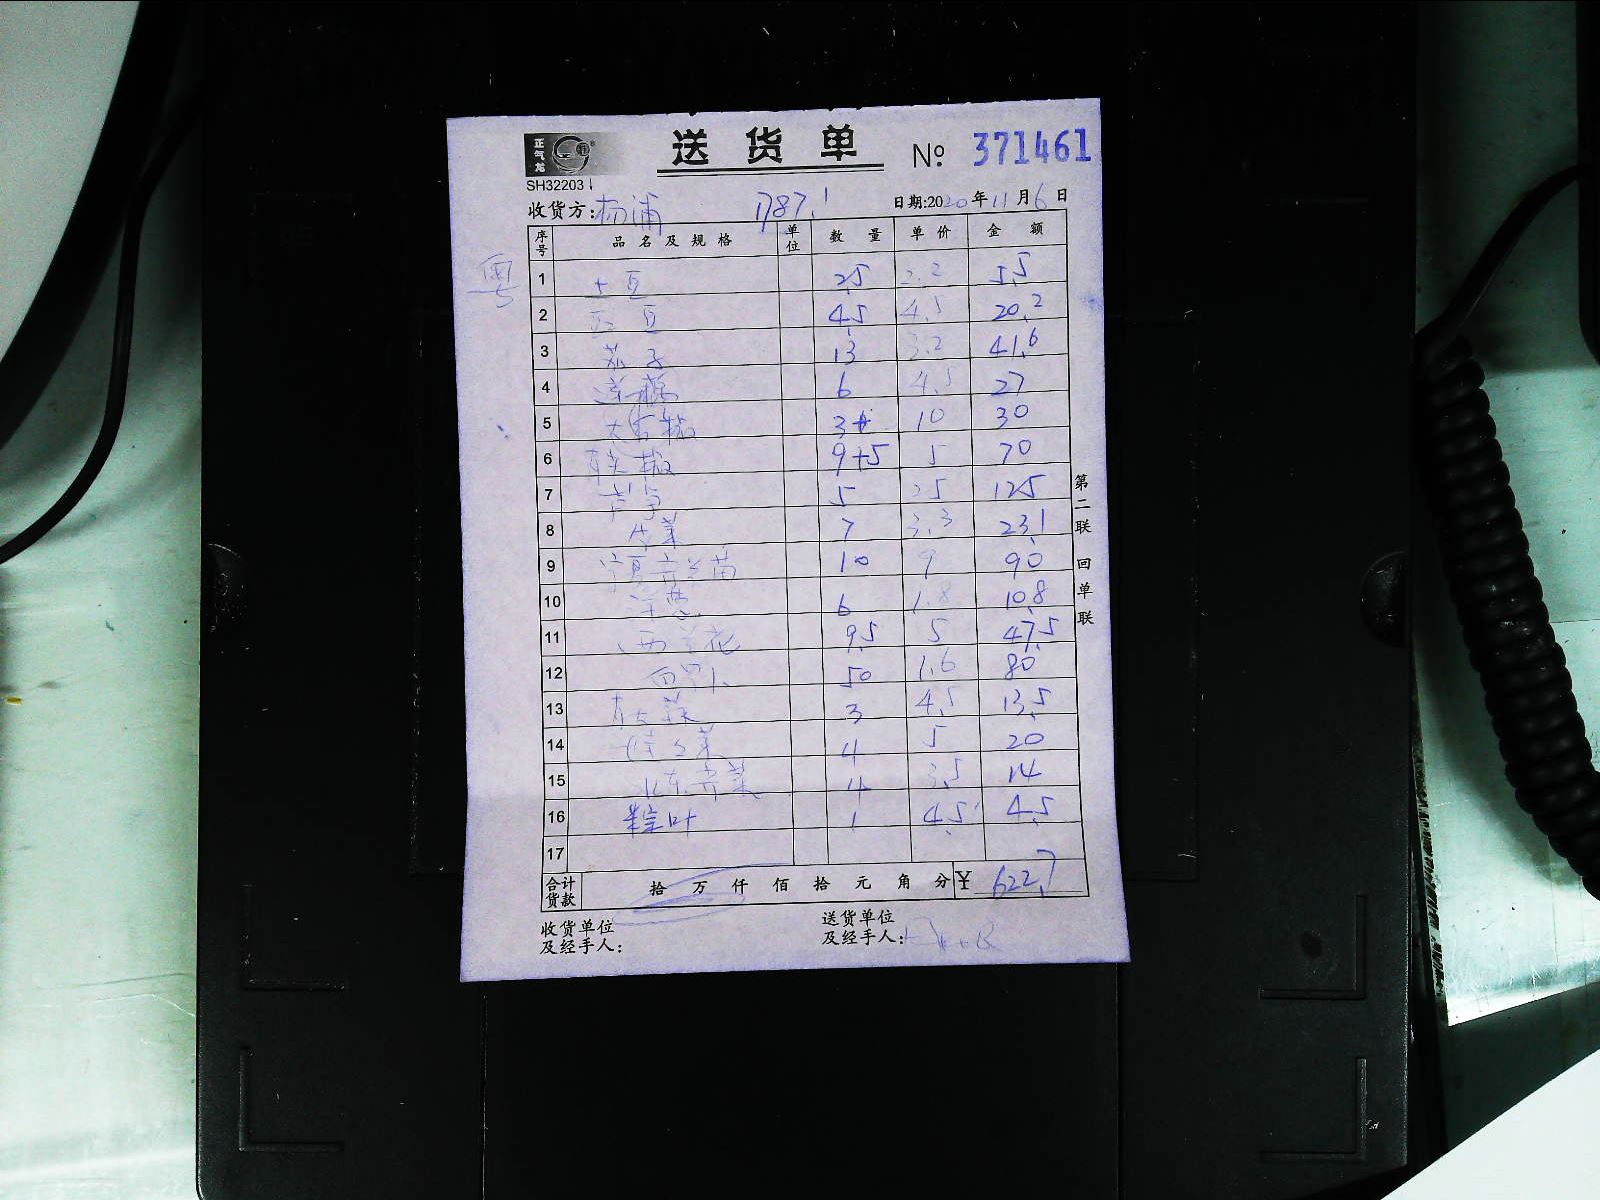 正气龙
送货单 № 371461
SH32203
收货方: 杨浦 1787.1 日期:2020年11月6日
粤
序号 品名及规格 单位 数量 单价 金额
1 土豆 2.5 2.2 5.5
2 豇豆 4.5 4.5 20.2
3 茄子 13 3.2 41.6
4 6 4.5 27
5 3 10 30
6 9+5 5 70
7 芦笋 5 25 125
8 生菜 7 3.3 23.1
9 宁夏 苗 10 9 90
10 洋葱 6 1.8 10.8
11 西兰花 9.5 5 47.5
12 白罗卜 50 1.6 80
13 3 4.5 13.5
14 菜 4 5 20
15 菜 4 3.5 14
16 粽叶 1 4.5 4.5
17
合计货款 拾万仟佰拾元角分 ¥ 622.7
收货单位及经手人: 送货单位及经手人:
第二联 回单联